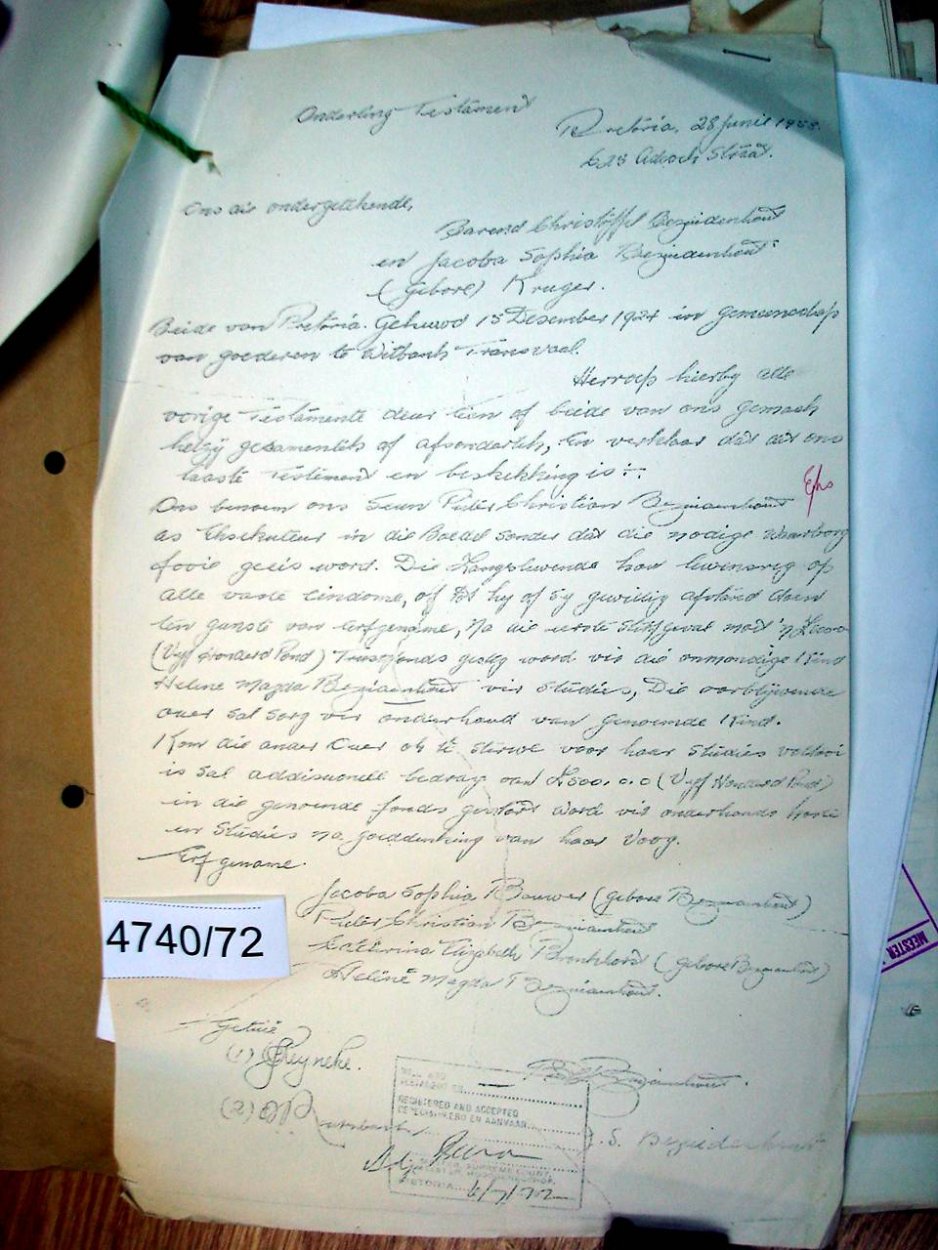 Onderling Testament
Pretoria, 28 Junie 1958.
Straat.
Ons die ondergetekende,
Barend Christoffel Bezuidenhout
en Jacoba Sophia Bezuidenhout
(gebore) Kruger.
Beide van Pretoria. Gehuwd 15 Desember 1924 in gemeenschap
van goederen te Witbank Transvaal.
Herroep hierby alle
vorige Testamente deur een of beide van ons gemaak
hetzy gesamentlik of afsonderlik, En verklaar dat dit ons
laaste Testament en beskikking is :-
Ons benoem ons Seun Pieter Christian Bezuidenhout
as Eksekuteur in die Boedel sonder dat die nodige Waarborg
fooie geeis word. Die Langslewende hou lewensreg op
alle vaste eindome, of tot hy of sy gewillig afstand doen
ten gunste van Erfgename, Na die eerste sterfgeval moet 'n £500-
(Vyf Honderd Pond) Trustfonds gestig word vir die onmondige Kind
Helene Magda Bezuidenhout vir Studies, Die oorblywende
ouer sal sorg vir onderhoud van genoemde Kind.
Kom die ander Ouer ok te sterwe voor haar Studies voltooi
is sal addisionele bedrag van £500.0.0 (Vyf Honderd Pond)
in die genoemde fonds gestort word vir onderhouds koste
en Studies na goeddunking van haar Voog.
Erfgename.
Jacoba Sophia Brouwer (gebore Bezuidenhout)
4740/72
Pieter Christian Bezuidenhout
Catherina Elizabeth (gebore Bezuidenhout)
Helene Magda Bezuidenhout.
Getuie
(1) Reyneke.
(2)
Bezuidenhout.
J. S. Bezuidenhout
WILL AND
TESTAMENT EN
REGISTERED AND ACCEPTED
GEREGISTREERD EN AANVAAR
MASTER, SUPREME COURT,
PRETORIA 6/7/72
MEESTER